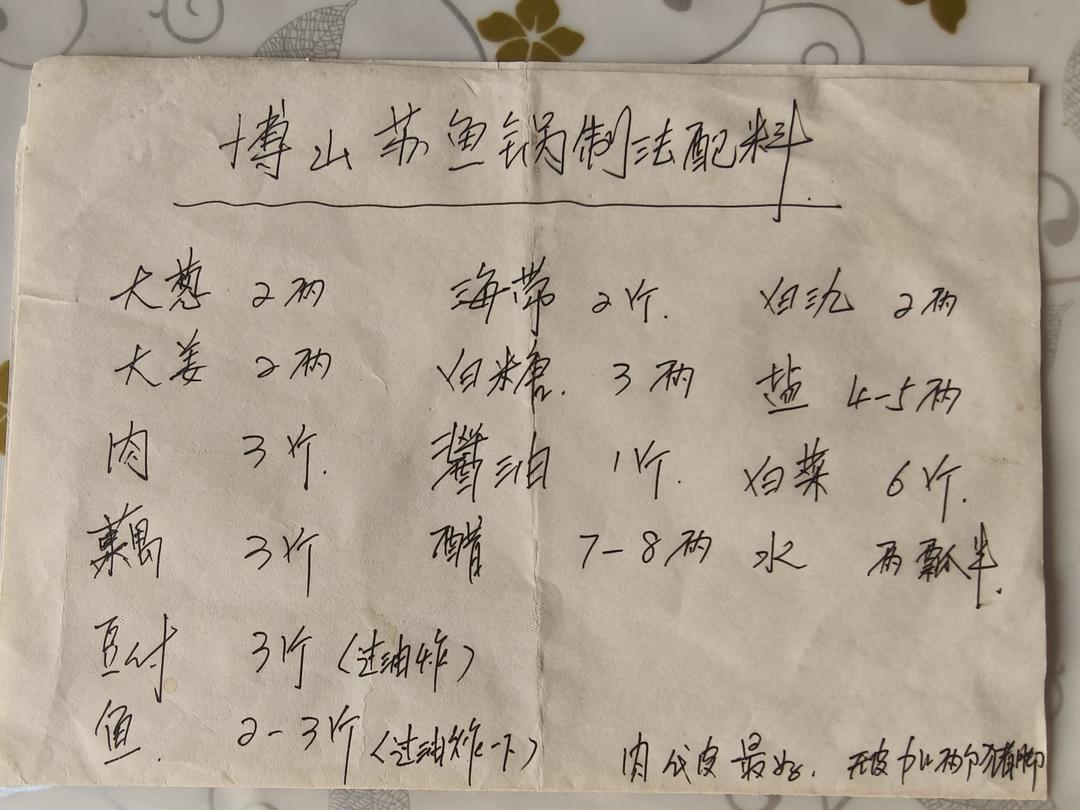 博山苏鱼锅制法配料
大葱 2两 海带 2斤. 白氿 2两
大姜 2两 白糖. 3两 盐 4-5两
肉 3斤. 酱油 1斤. 白菜 6斤.
藕 3斤 醋 7-8两 水 两瓢半.
豆付 3斤(过油炸)
鱼. 2-3斤(过油炸一下)
肉代皮最好. 无皮加两个猪脚